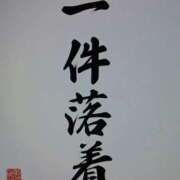 一件落着